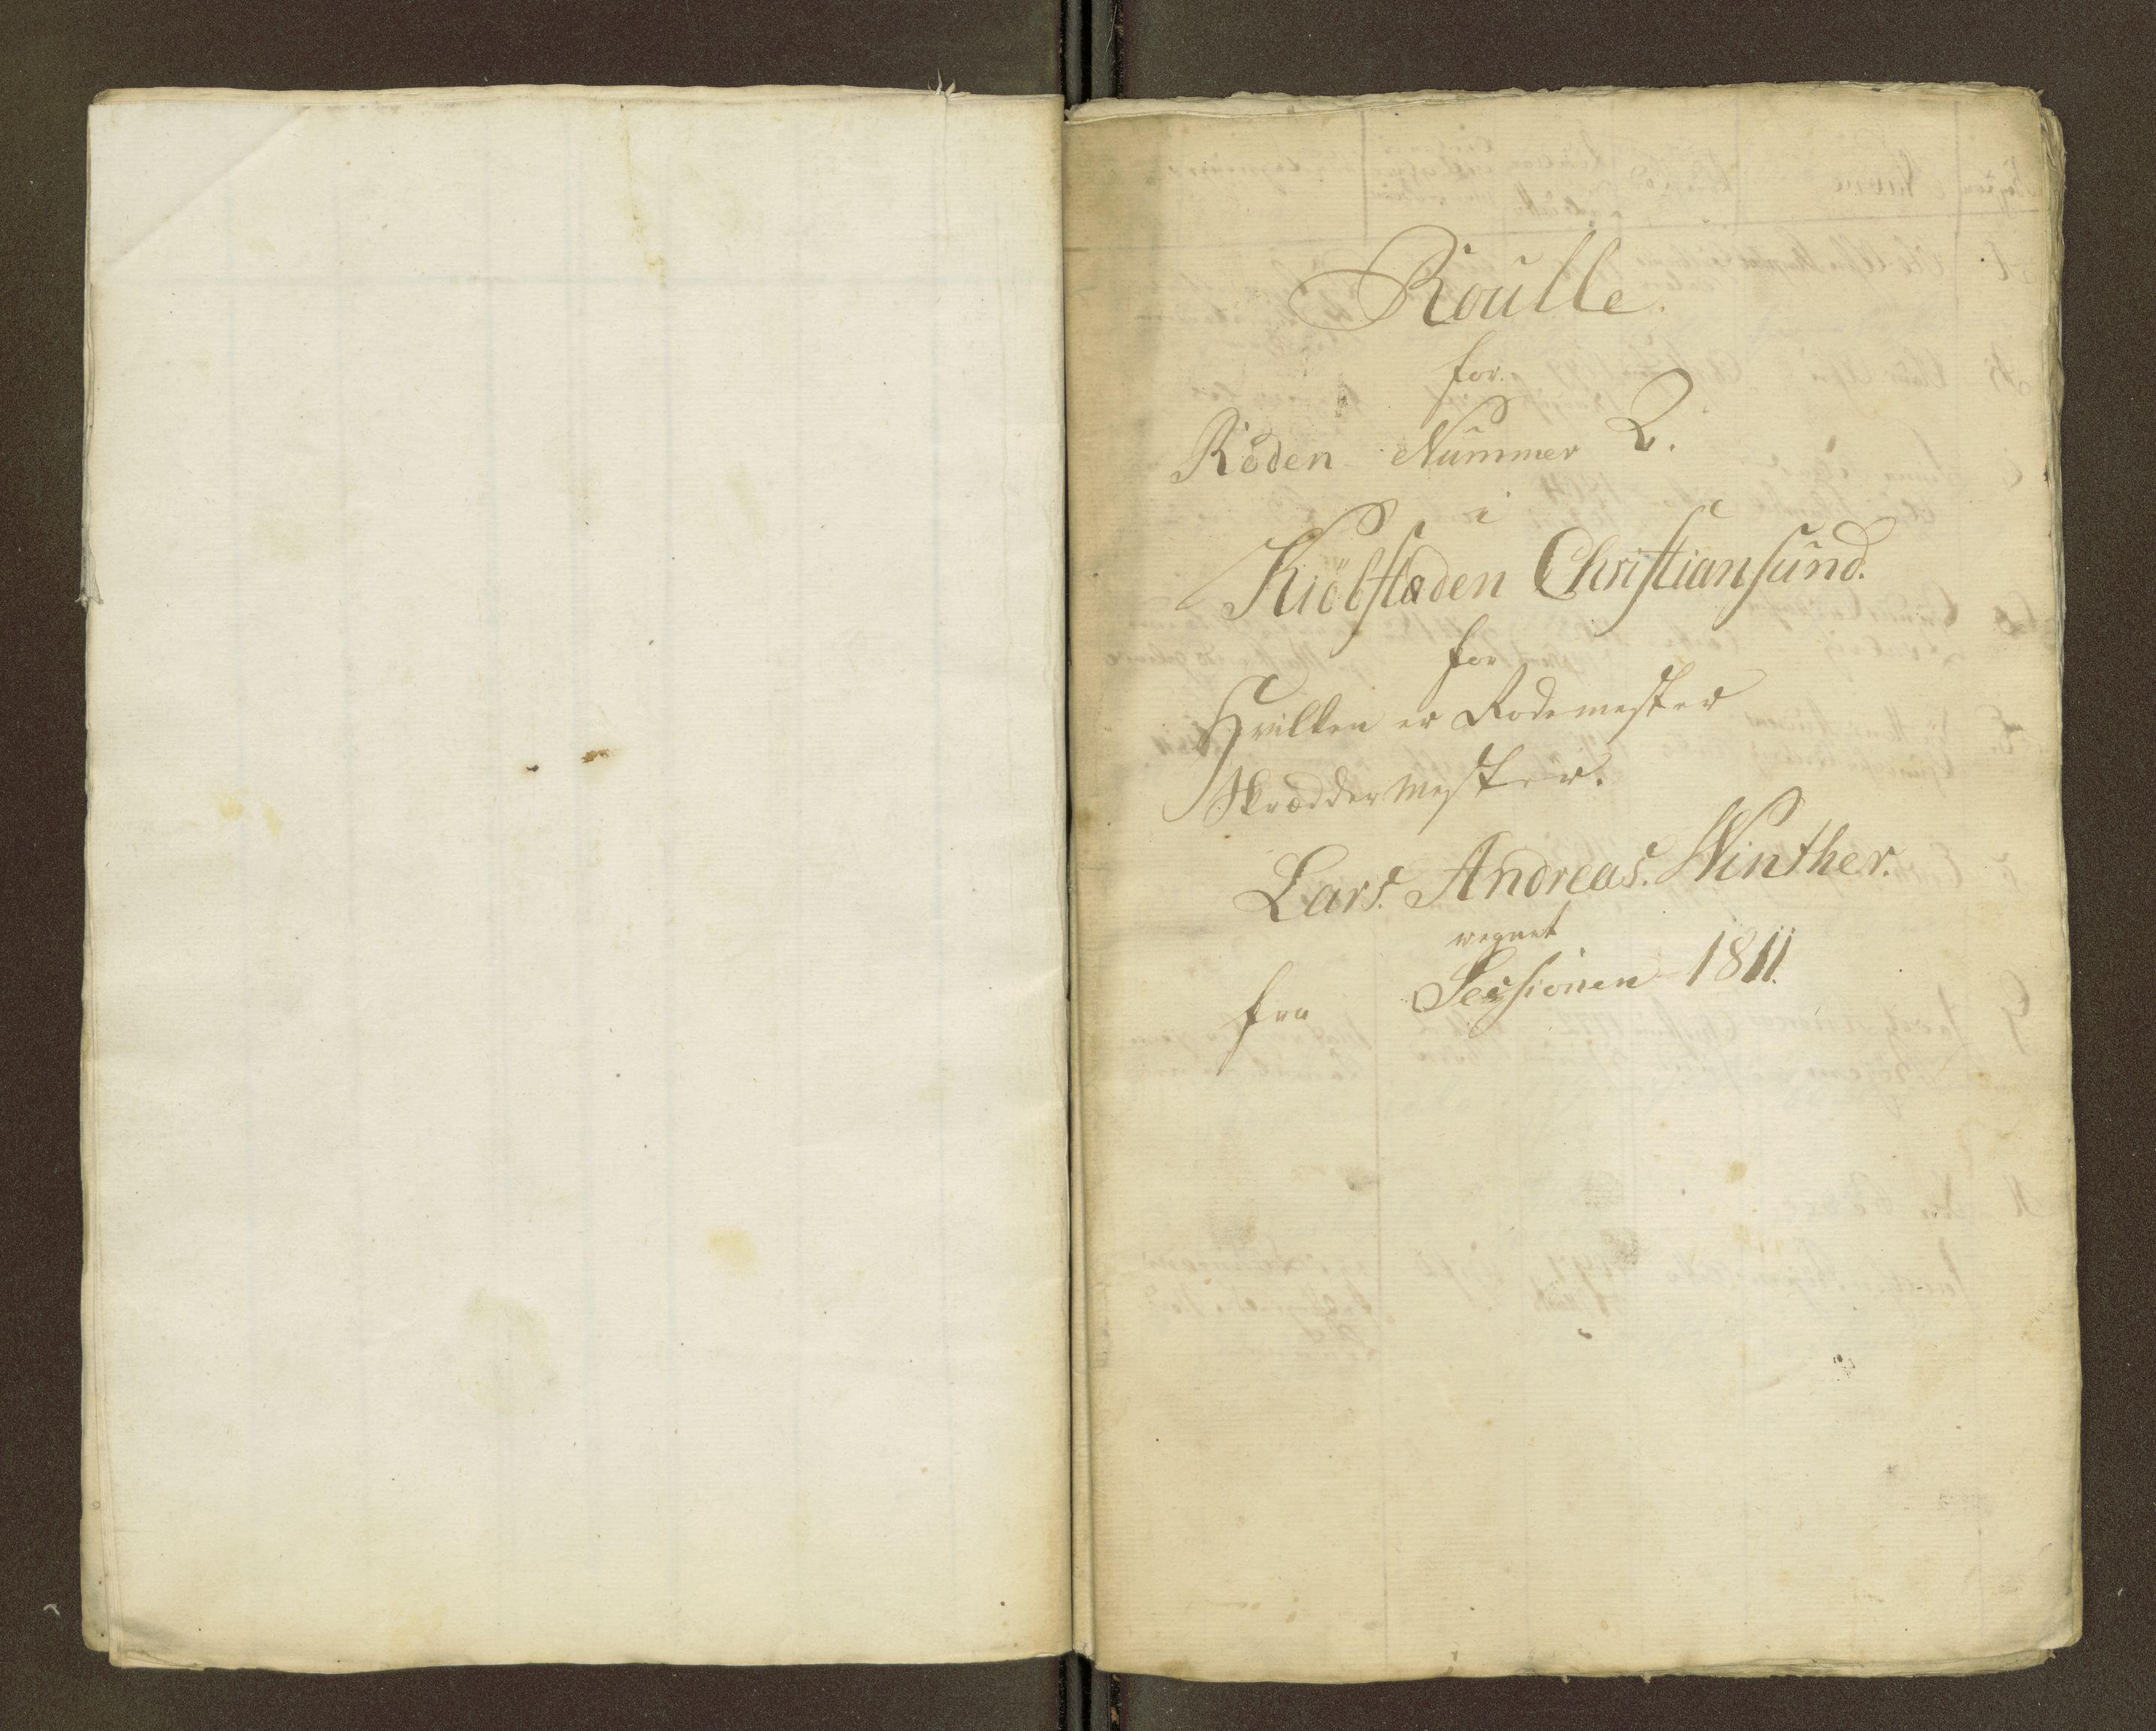 Roulle.
for.
Roden Nummer 2.
i
Kiöbstæden Christiansund.
for
Hvilken er Rodemester
Skrædder Mester.
Lars. Andreas. Winther.
regnet
fra Sessionen 1811.